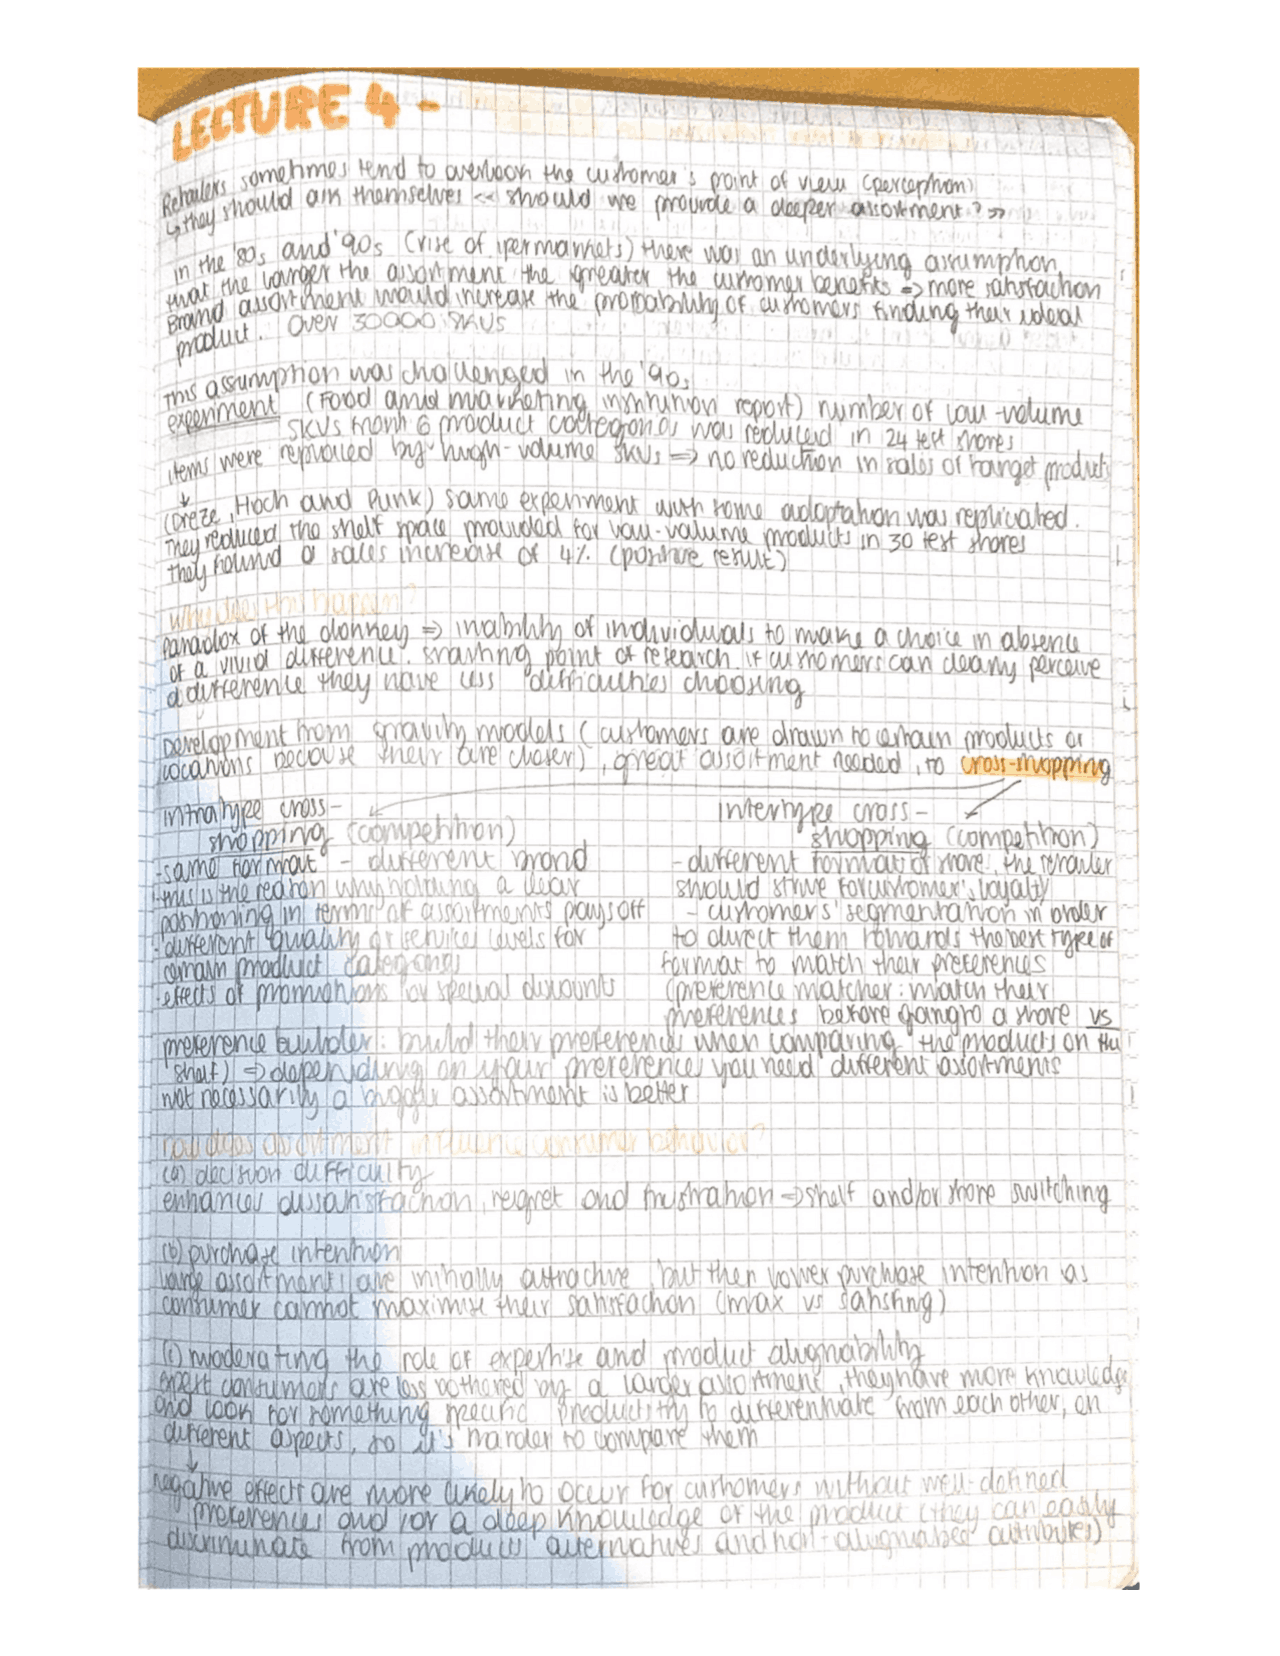 LECTURE 4 -
Retailers sometimes tend to overlook the customer's point of view (perception)
↳ they should ask themselves << should we provide a deeper assortment? >>
in the '80s and '90s (rise of ipermarkets) there was an underlying assumption
that the larger the assortment the greater the customer benefits => more satisfaction
Brand assortment would increase the probability of customers finding their ideal
product. Over 30000 SKUs
this assumption was challenged in the '90s
experiment (Food and marketing institution report) number of low-volume
SKUs from 6 product categories was reduced in 24 test stores
items were replaced by high-volume SKUs => no reduction in sales of target products
↓
(Dreze, Hoch and Purk) same experiment with some adaptation was replicated.
They reduced the shelf space provided for low-volume products in 30 test stores
they found a sales increase of 4% (positive result)
Why does this happen?
paradox of the donkey => inability of individuals to make a choice in absence
of a vivid difference. starting point of research. if customers can clearly perceive
a difference they have less difficulties choosing
Development from gravity models (customers are drawn to certain products or
locations because their are closer), great assortment needed, to cross-shopping
intratype cross-
shopping (competition)
-same format - different brand
-this is the reason why holding a clear
positioning in terms of assortments pays off
-different quality or services levels for
certain product categories
-effects of promotions or special discounts
intertype cross-
shopping (competition)
-different format of store, the retailer
should strive for customer's loyalty
- customers' segmentation in order
to direct them towards the best type of
format to match their preferences
(preference matcher: match their
preferences before going to a store vs
preference builder: build their preferences when comparing the products on the
shelf) => depending on your preferences you need different assortments
not necessarily a bigger assortment is better
how does assortment influence consumer behavior?
(a) decision difficulty
enhances dissatisfaction, regret and frustration => shelf and/or store switching
(b) purchase intention
large assortments are initially attractive, but then lower purchase intention as
consumer cannot maximise their satisfaction (max vs satisfing)
(c) moderating the role of expertise and product alignability
expert consumers are less bothered by a larger assortment, they have more knowledge
and look for something specific products try to differentiate from each other, on
different aspects, so it's harder to compare them
↓
negative effects are more likely to occur for customers without well-defined
preferences and/or a deep knowledge of the product (they can easily
discriminate from products alternatives and non-alignabled attributes)